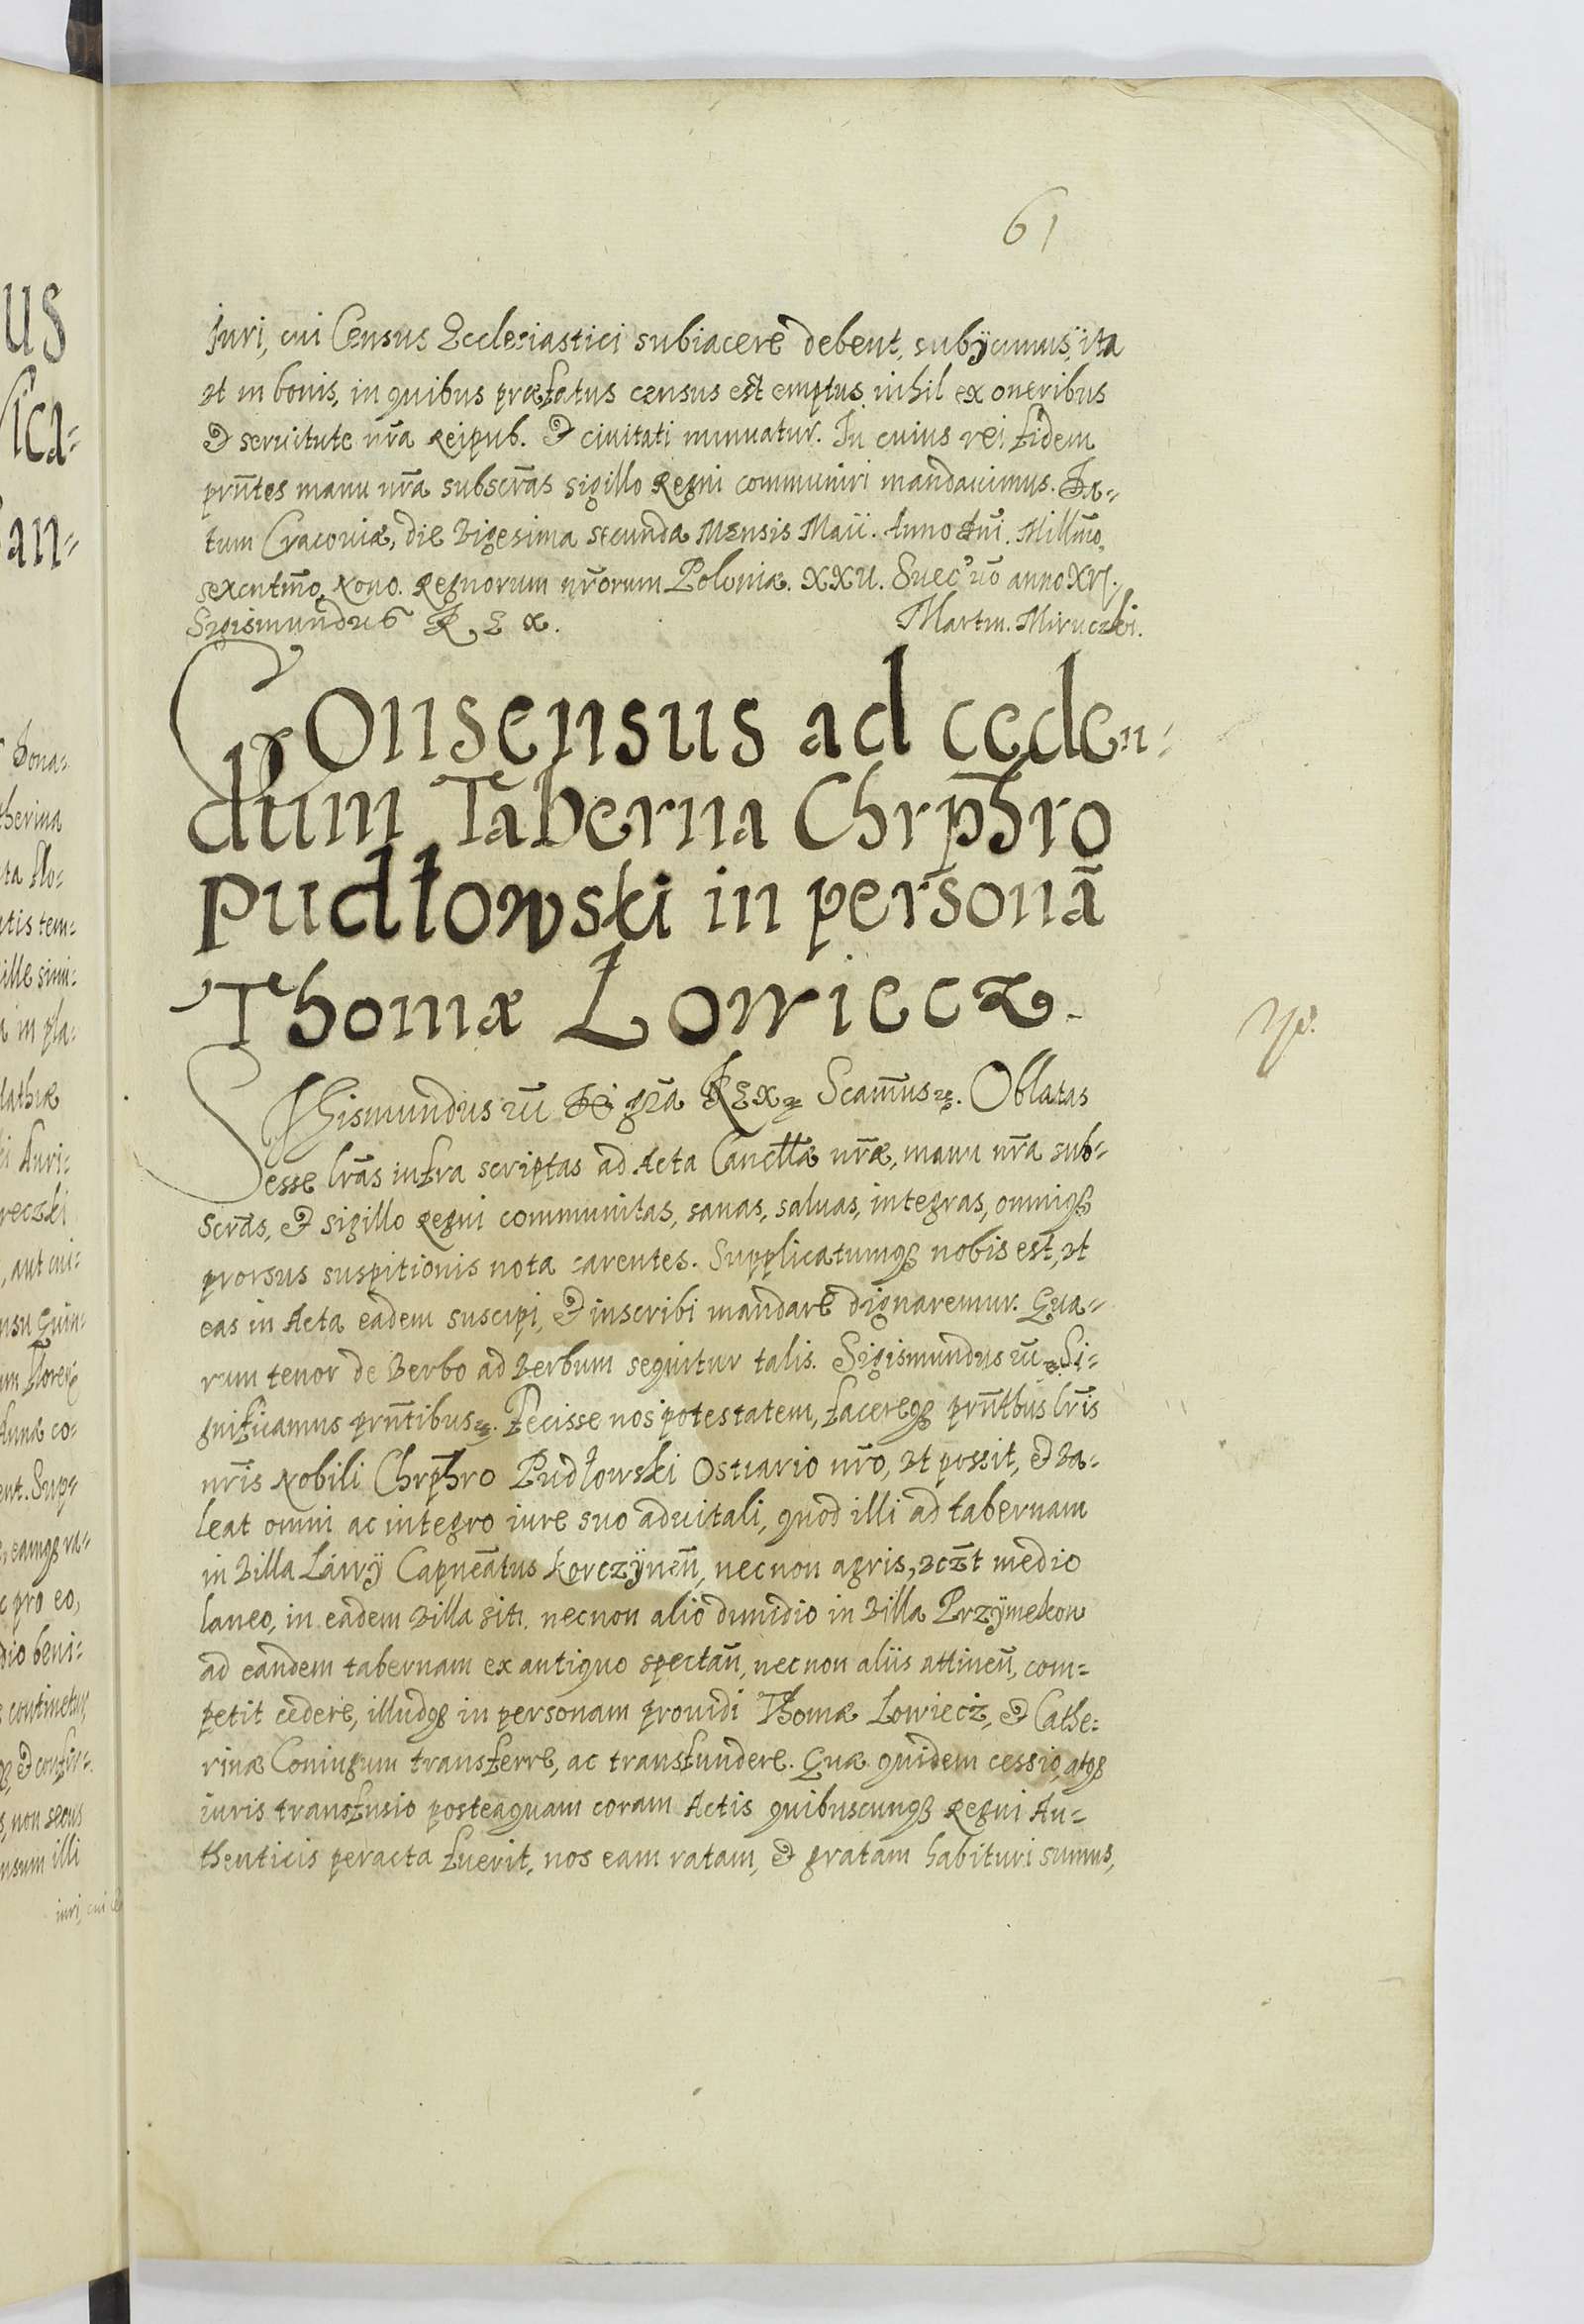 61
Iuri, cui Census Ecclesiastici subiacere debent, subÿcimus, ita
ut in bonis, in quibus præfatus census est emptus, nihil ex oneribus
& seruitute nr̃a Reipub. & ciuitati minuatur. In cuius rei fidem
pr̃ntes manu nr̃a subscr̃as sigillo Regni communiri mandauimus. Da-
tum Cracouiæ, die Vigesima secunda Mensis Maii. Anno Dni. Millmo,
sexcntmo, Nono. Regnorum nr̃orum Poloniæ. XXII. Suec' vo anno XVI.
Sigismundus REX.
Martin. Miruczki.
Consensus ad ceden-
dum Taberna Chrp̃hro
Pudłowski in personã
Thomæ Łowiecz.
SIgismundus 3tiũ Dei gr̃a REX Scamus. Oblatas
esse lr̃as infra scriptas ad Acta Cancllæ nr̃æ, manu nr̃a sub-
scr̃as, & sigillo Regni communitas, sanas, saluas, integras, omniq;
prorsus suspitionis nota carentes. Supplicatumq; nobis est, ut
eas in Acta eadem suscipi, & inscribi mandare dignaremur. Qua-
rum tenor de Verbo ad Verbum sequitur talis. Sigismundus 3tiũ. Si-
gnificamus pr̃ntibus. Fecisse nos potestatem, facereq; pr̃ntbus lr̃is
nr̃is Nobili Chrp̃hro Pudłowski Ostiario nr̃o, ut possit, & Va-
leat omni ac integro iure suo aduitali, quod illi ad tabernam
in Villa Ławÿ Capneãtus Korczÿneñ, necnon agris, vczt medio
laneo, in eadem Villa siti. necnon alio dimidio in Villa Przÿmekow
ad eandem tabernam ex antiquo spectañ, necnon aliis attineñ, com-
petit cedere, illudq; in personam prouidi Thomæ Łowiecz, & Cathe-
rinæ Coniugum transferre, ac transfundere. Quæ quidem cessio, atq;
iuris transfusio posteaquam coram Actis quibuscunq; Regni Au-
thenticis peracta fuerit, nos eam ratam, & gratam habituri sumus,